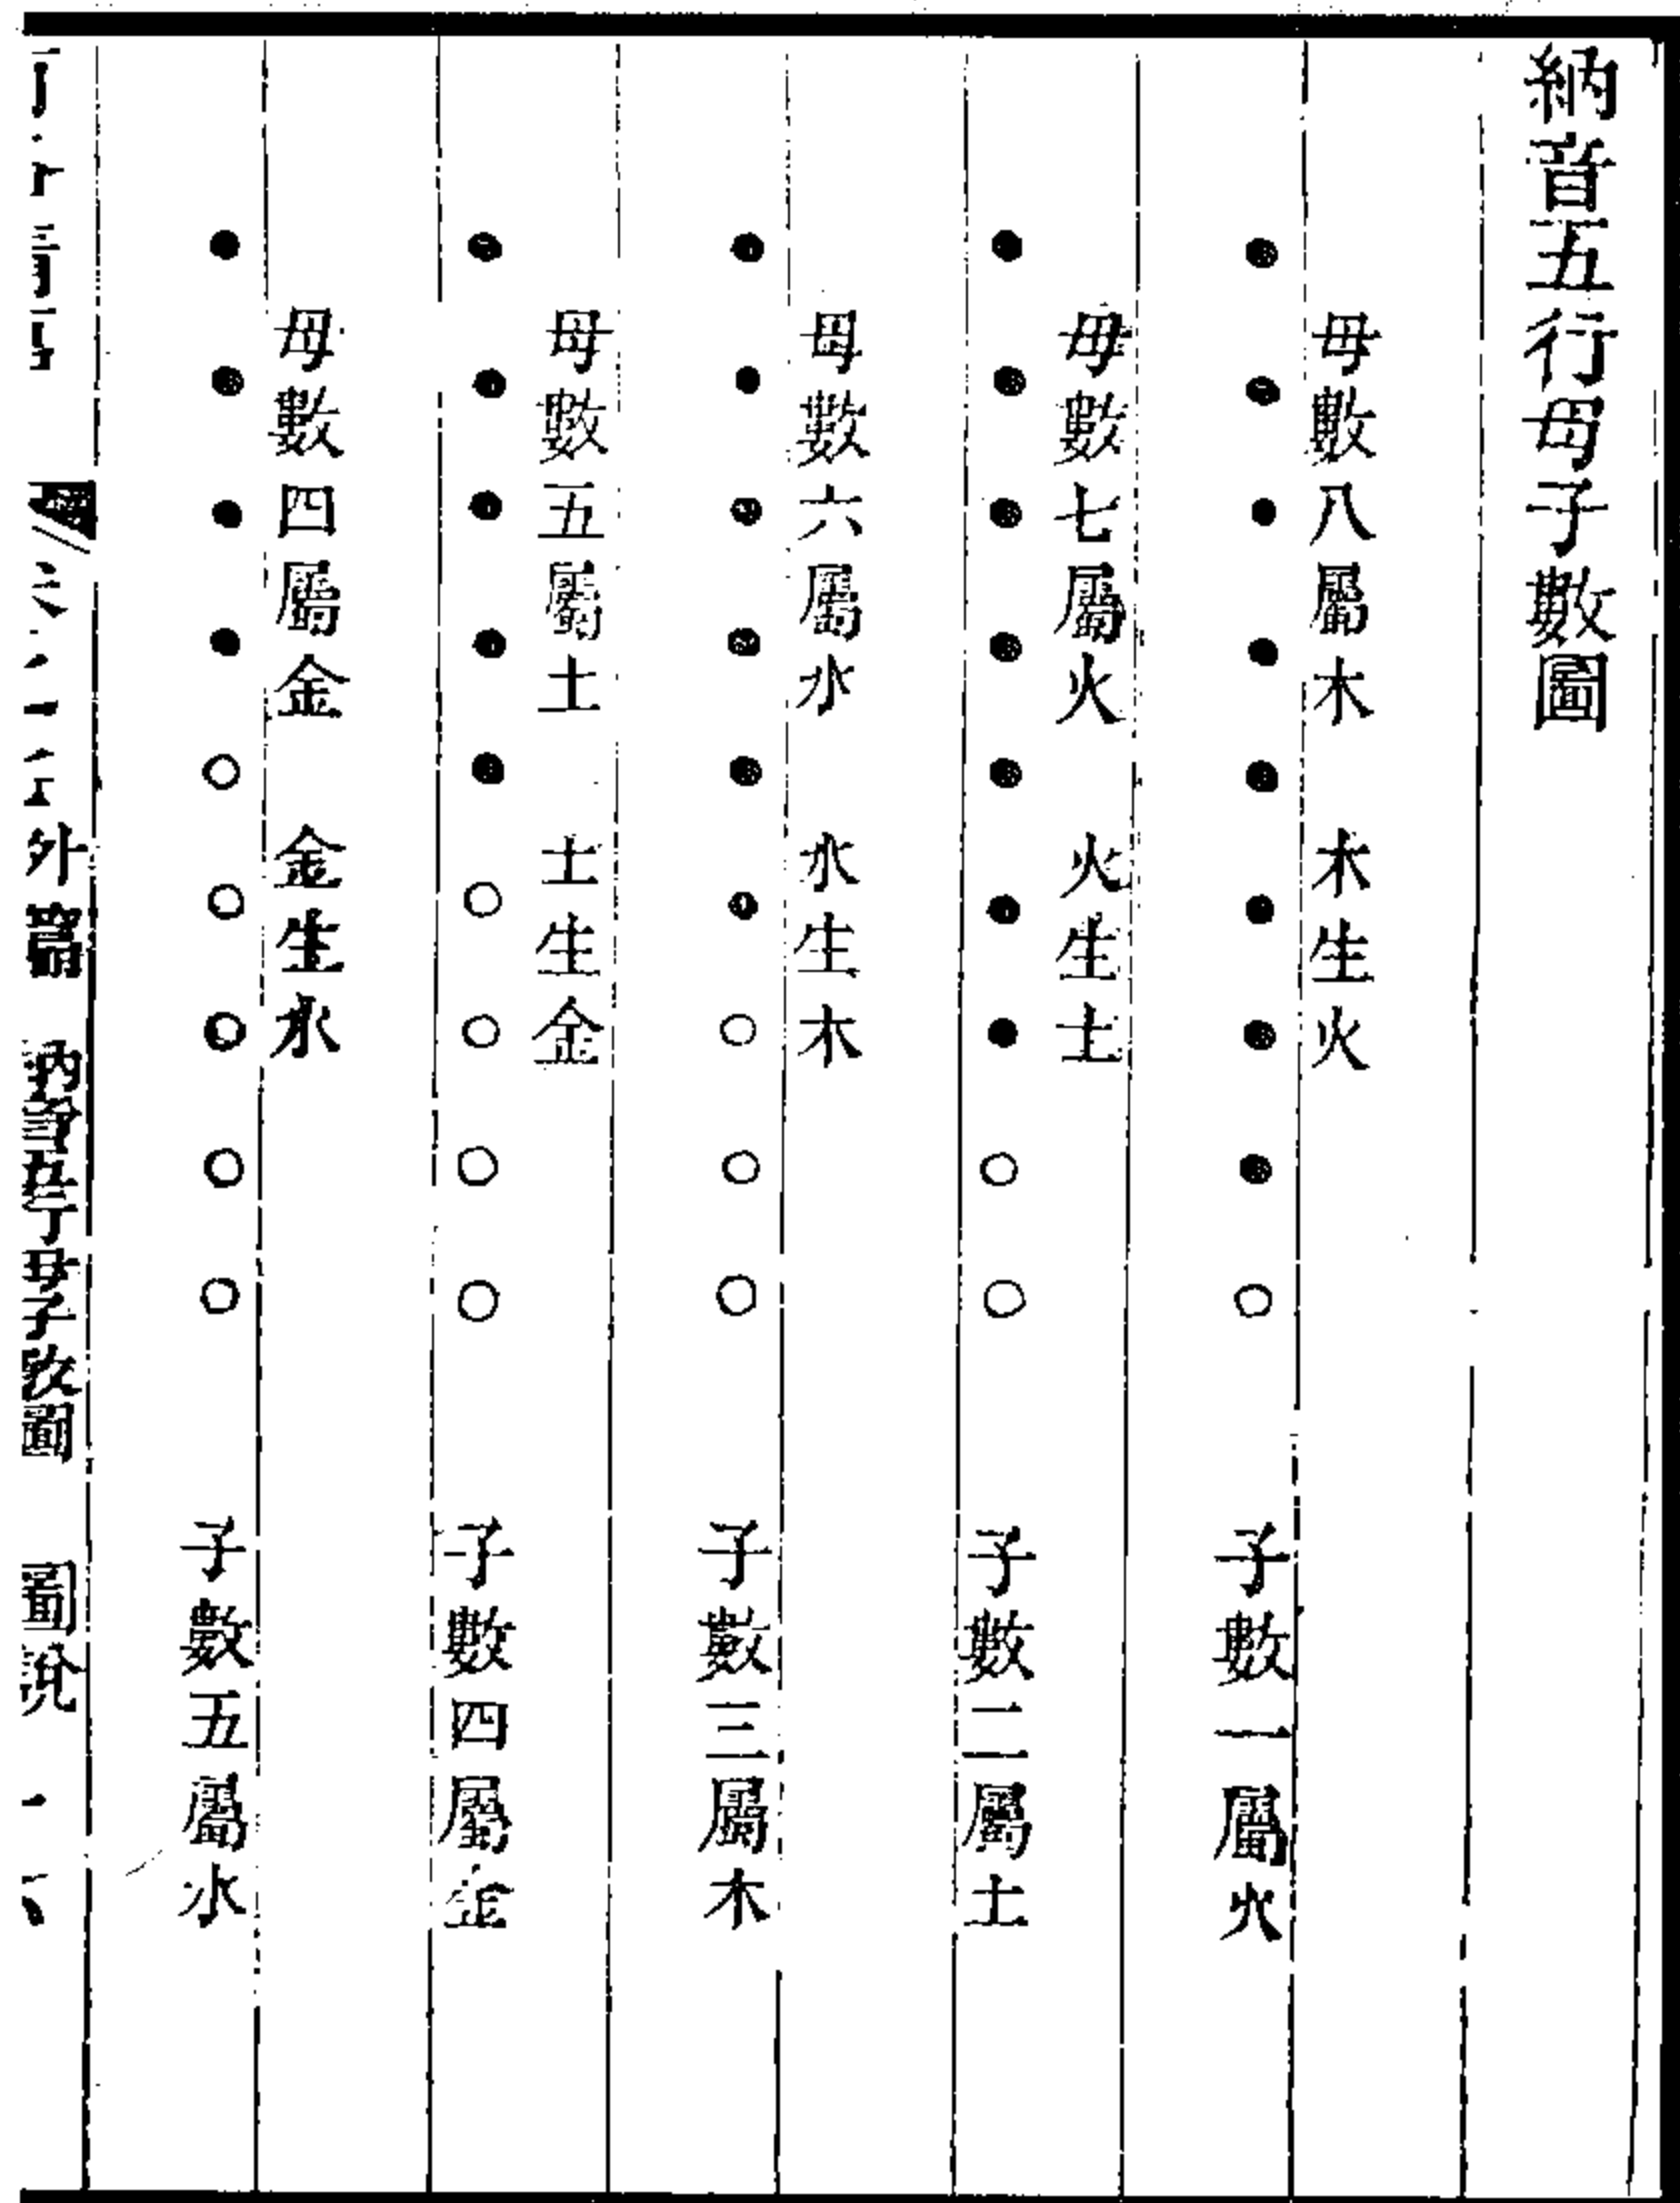 納音五行母子數圖
母數八屬木 木生火
子數一屬火
母數七屬火 火生土
子數二屬土
母數六屬水 水生木
子數三屬木
母數五屬土 土生金
子數四屬金
母數四屬金 金生水
子數五屬水
外篇 納音五行母子數圖 圖說